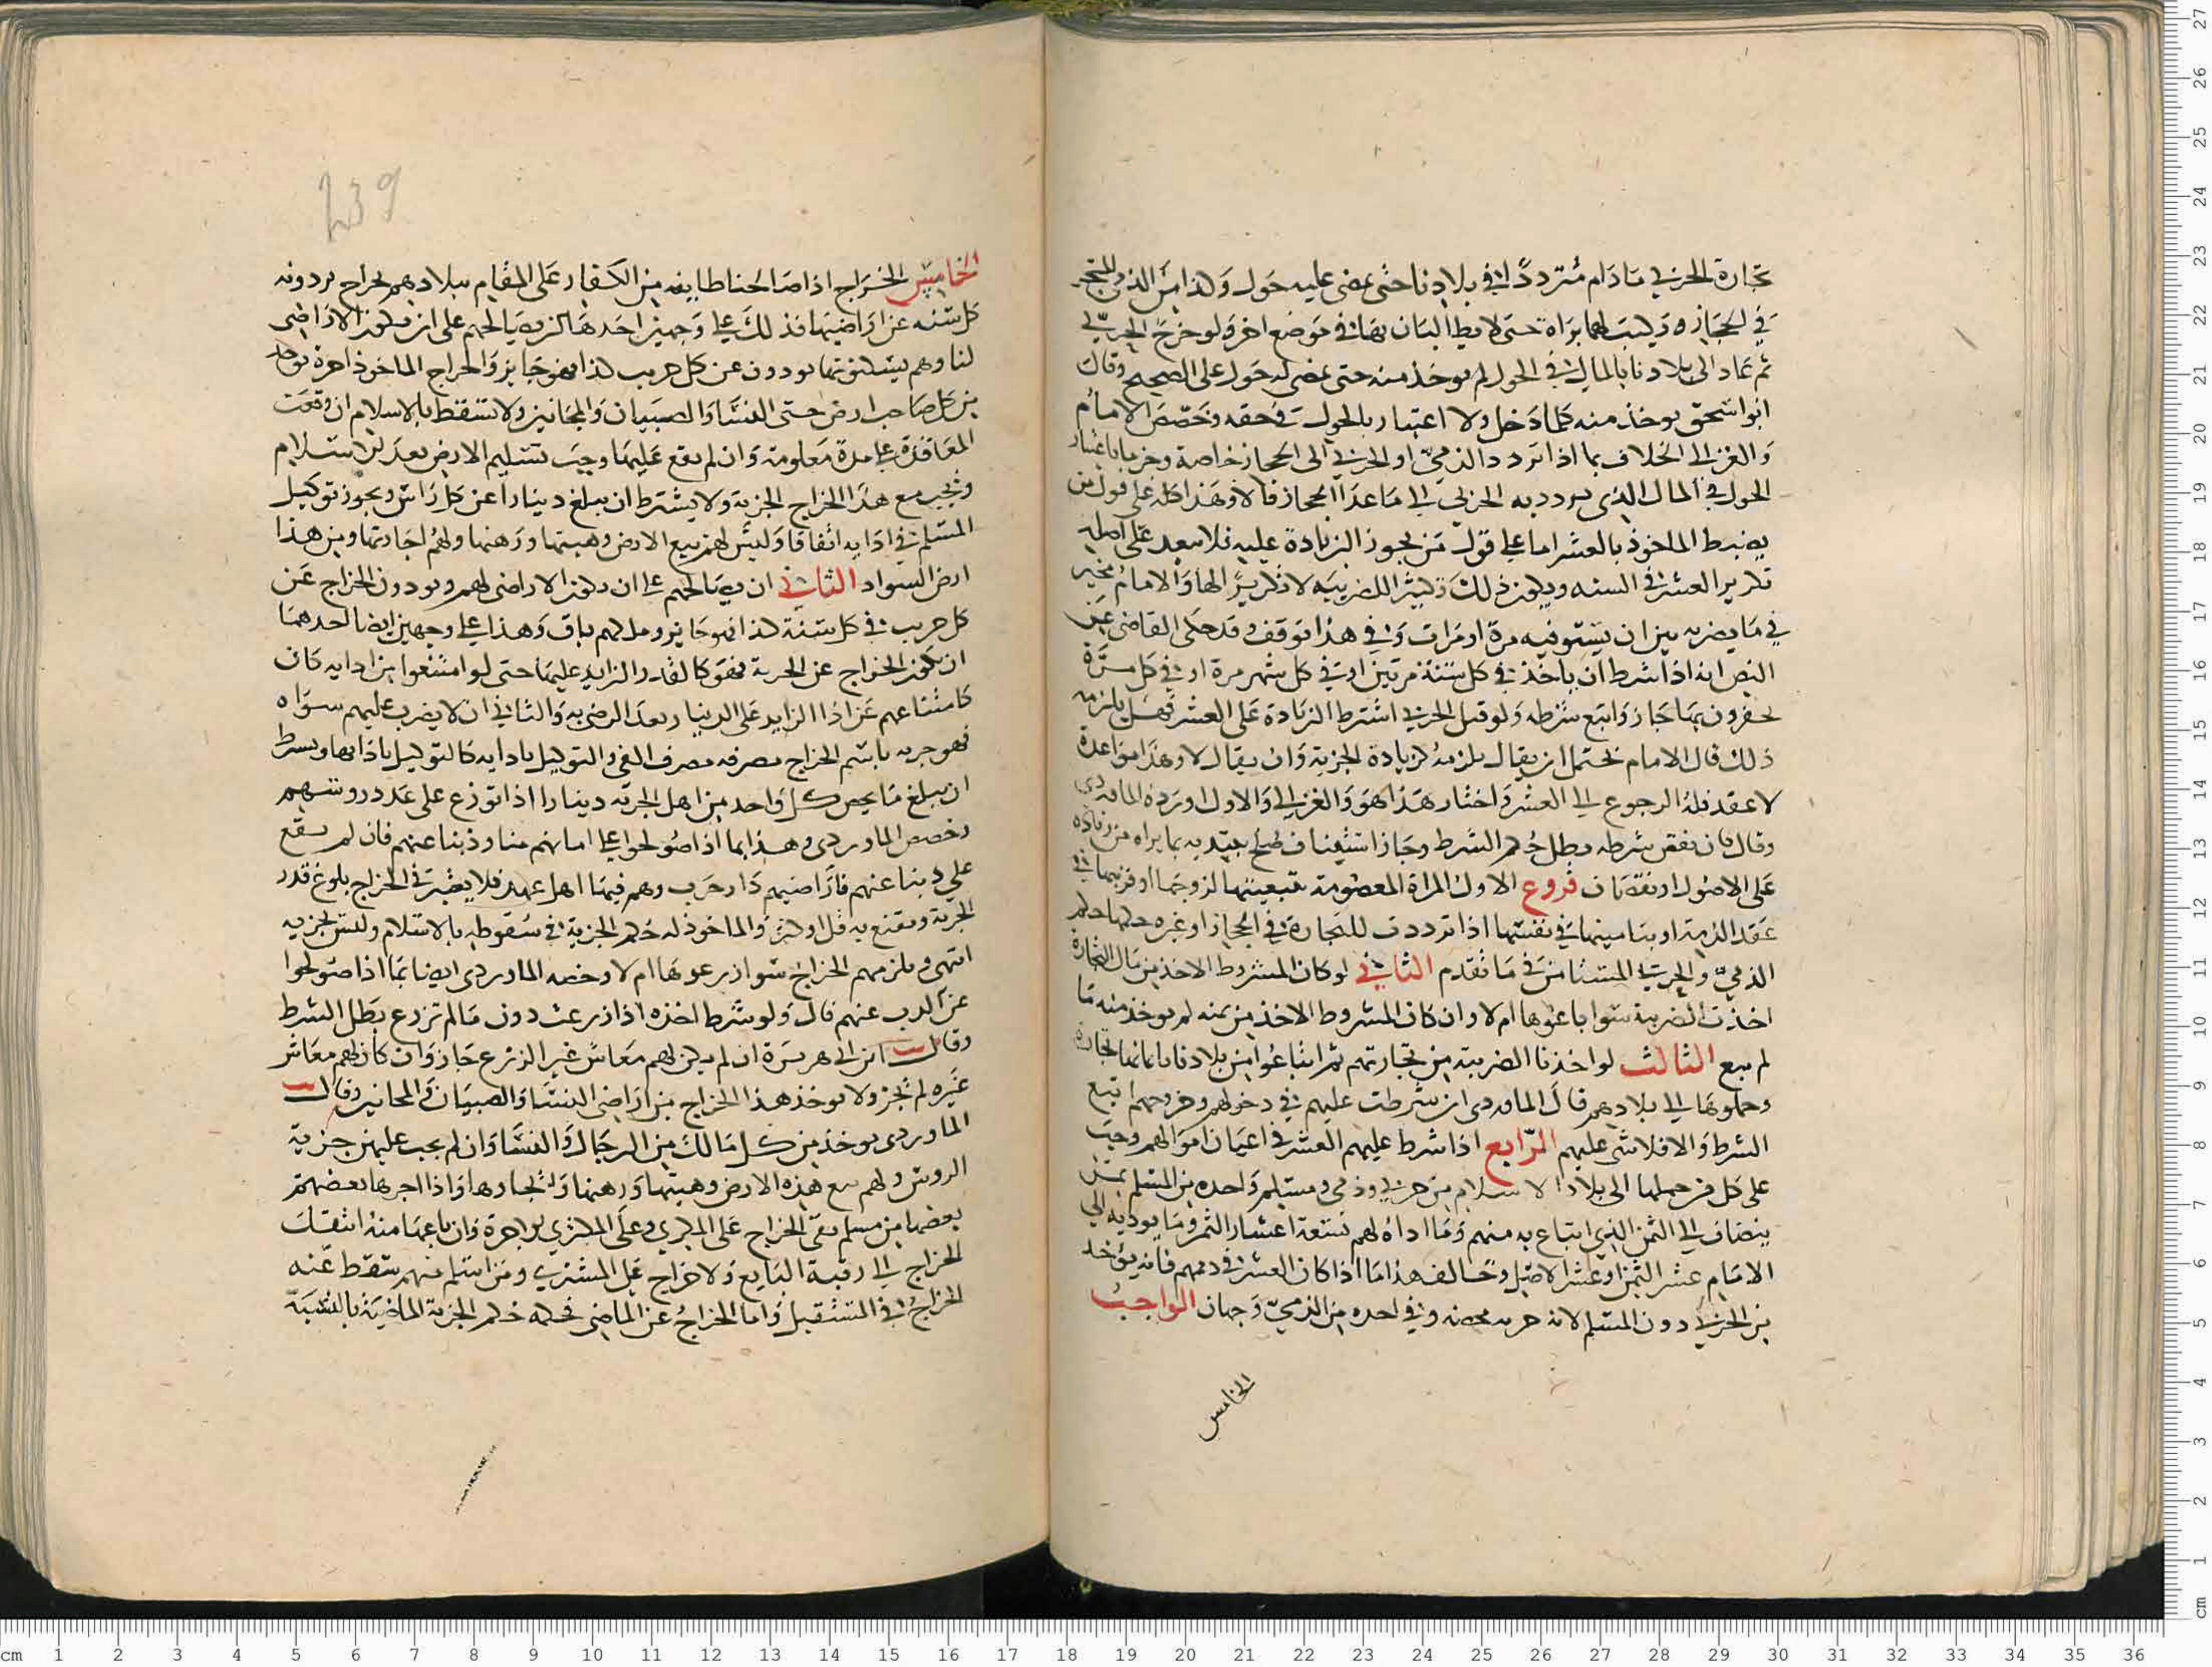 تجارة الحربي مادام مترددا في بلادنا حتى يمضي عليه حول وكذا من الذمي للمتجر
في الحجاز ويكتب لهما براة حتى لا يطالبان بها في موضع اخر ولو خرج الحربي
ثم عاد الى بلادنا بالمال في الحول لم يوخذ منه حتى يمضي له حول على الصحيح وقال
ابو اسحق يوخذ منه كلما دخل ولا اعتبار بالحول في حقه وخصص الامام
والغزالي الخلاف بما اذا تردد الذمي او الحربي الى الحجاز خاصة وجزما باعتبار
الحول في المال الذي يردد به الحربي الى ما عدا الحجاز قالا وهذا كله على قول من
يضبط الماخوذ بالعشر اما على قول من يجوز الزيادة عليه فلا يبعد على اصله
تكرير العشر في السنه ويكون ذلك تكثيرا للضريبه لا تكريرا لها والامام مخير
في ما يضربه بين ان يستوفيه مرة او مرات وفي هذا توقف وقد حكى القاضي عن
النص انه اذا شرط ان ياخذ في كل سنة مرتين او في كل شهر مرة او في كل مرة
يحضرون بها جاز واتبع شرطه ولو قبل الحربي اشترط الزيادة على العشر فهل يلزمه
ذلك قال الامام يحتمل ان يقال يلزمه كزيادة الجزية وان يقال لا وهذا مواعدة
لا عقد فله الرجوع الى العشر واختار هذا هو والغزالي والاول اورده الماوردي
وقال فان نقض شرطه بطل حكم الشرط وجاز استيناف صلح يبتديه بما يراه من زيادة
على الاصول او نقصان فروع الاول المراة المعصومة بتبعيتها لزوجها او قريبها في
عقد الذمة او بتامينها في نفسها اذا ترددت للتجارة في الحجاز او غيره حكمها حكم
الذمي والحربي المستامن في ما تقدم الثاني لو كان المشروط الاخذ من مال التجارة
اخذت الضريبة سوا باعوها ام لا وان كان المشروط الاخذ من ثمنه لم يوخذ منه ما
لم يبع الثالث لو اخذنا الضريبة من تجارتهم ثم ابتاعوا من بلادنا باثمانها تجارة
وحملوها الى بلادهم قال الماوردي ان شرطت عليهم في دخولهم وخروجهم اتبع
الشرط والا فلا شي عليهم الرابع اذا شرط عليهم العشر في اعيان اموالهم وجب
على كل من حملها الى بلاد الاسلام من حربي وذمي ومسلم واحده من المسلم بمثن
ينضاف الى الثمن الذي ابتاع به منهم وما اداه لهم تسعة اعشار الثمن وما يوديه الى
الامام عشر الثمن او عشر الاصل وخالف هذا ما اذا كان العشر في ذممهم فانه يوخذ
من الحربي دون المسلم لانه جزيه محضه وفي اخذه من الذمي وجهان الواجب
الخامس
239
الخامس الخراج اذا صالحنا طايفه من الكفار على المقام ببلادهم بخراج يردونه
كل سنه عن اراضيها فذلك على وجهين احدهما ان يصالحهم على ان يكون الاراضي
لنا وهم يسكنونها يودون عن كل جريب كذا فهو جايز والخراج الماخوذ اجرة يوخذ
من كل صاحب ارض حتى النسا والصبيان والمجانين ولا تسقط بالاسلام ان وقعت
المعاقدة على مدة معلومة وان لم يقع عليها وجب تسليم الارض بعد الاسلام
ويجب مع هذا الخراج الجزية ولا يشترط ان يبلغ دينارا عن كل راس ويجوز توكيل
المسلم في ادايه اتفاقا وليس لهم بيع الارض وهبتها ورهنها ولهم اجارتها ومن هذا
ارض السواد الثاني ان يصالحهم على ان يكون الاراضي لهم ويودون الخراج عن
كل جريب في كل سنة كذا فهو جايز وملكهم باق وهذا على وجهين ايضا احدهما
ان يكون الخراج عن الجزية فهو كالقدر الزايد عليها حتى لو امتنعوا من ادايه كان
كامتناعهم عن اذا الزايد على الدينار بعد الرضى به والثاني ان لا يضرب عليهم سواه
فهو جزيه باسم الخراج مصرفه مصرف الفي والتوكيل بادايه كالتوكيل باذايها ويشرط
ان يبلغ ما يخص كل واحد من اهل الجزيه دينارا اذا توزع على عدد روسهم
وخصص الماوردي وهذا بما اذا صولحوا على امانهم منا وذبنا عنهم فان لم يقع
على ذبنا عنهم فاراضيهم دار حرب وهم فيها اهل عهد فلا يعتبر في الخراج بلوغ قدر
الجزية ويقنع به قل او كثر والماخوذ له حكم الجزية في سقوطه بالاسلام وليس بجزيه
انتهى ويلزمهم الخراج سوا زرعوها ام لا وخصه الماوردي ايضا بما اذا صولحوا
عن الذب عنهم قال ولو شرط اخذه اذا زرعت دون ما لم تزرع بطل الشرط
وقال ابن ابي هريرة ان لم يكن لهم معاش غير الزرع جاز وان كان لهم معاش
غيره لم يجز ولا يوخذ هذا الخراج من اراضي النسا والصبيان والمجانين وقال
الماوردي يوخذ من كل مالك من الرجال والنسا وان لم يجب عليهن جزية
الروس ولهم بيع هذه الارض وهبتها ورهنها واجارها واذا اجرها بعضهم
بعضها من مسلم بقي الخراج على المكري وعلى المكتري الاجرة وان باعها منه انتقل
الخراج الى رقبة البايع ولا خراج على المشتري ومن اسلم منهم سقط عنه
الخراج في المستقبل واما الخراج عن الماضي فحكمه حكم الجزية الماضية بالنسبة